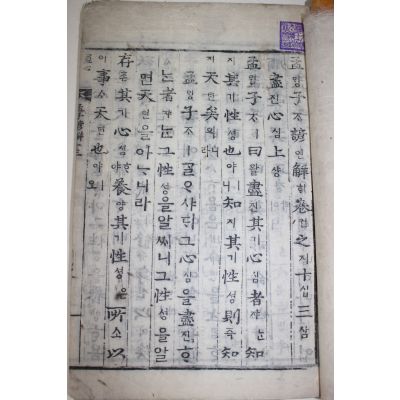 孟ᄆᆡᆼ子ᄌᆞ諺언解ᄒᆡ卷권之지十십三삼
盡진心심上샹
孟ᄆᆡᆼ子ᄌᆞㅣ曰왈盡진其기心심者쟈ᄂᆞᆫ知
지其기性셩也야ㅣ니知지其기性셩則즉知
지天텬矣의니라
孟ᄆᆡᆼ子ᄌᆞㅣᄀᆞᆯᄋᆞ샤ᄃᆡ그心심을盡진ᄒᆞ
ᄂᆞᆫ者쟈ᄂᆞᆫ그性셩을알ᄯᅵ니그性셩을알
면天텬을아ᄂᆞ니라
存존其기心심ᄒᆞ야養양其기性셩은所소以
이事ᄉᆞ天텬也야ㅣ오